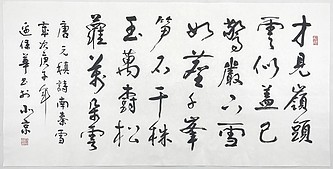 才見嶺頭
雲似蓋已
驚巖下雪
如塵千峯
笋石千株
玉萬樹松
蘿萬朵雲
唐元稹詩南秦雪
歲次庚子年
遲得華書於北京